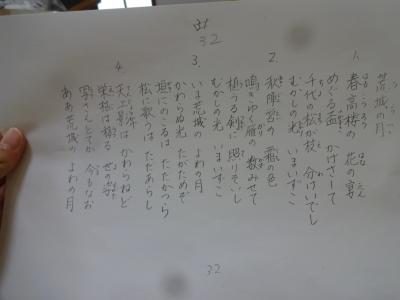 荒城の月
1. 春高楼の 花の宴
めぐる盃 かげさして
千代の松が枝 分けいでし
むかしの光 いまいずこ
2. 秋陣営の 霜の色
鳴きゆく雁の 数みせて
植うる剣に 照りそいし
むかしの光 いまいずこ
3. いま荒城の よわの月
かわらぬ光 たがためぞ
垣にのこるは ただかつら
松に歌うは ただあらし
4. 天上影は かわらねど
栄枯は移る 世の姿
写さんとてか 今もなお
ああ荒城の よわの月
32
32